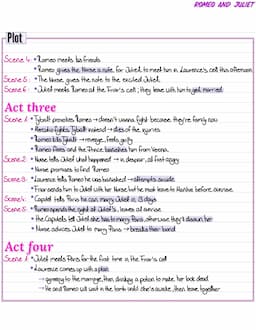 ROMEO AND JULIET
Plot
Scene 4: • Romeo meets his friends
• Romeo gives the Nurse a note for Juliet, to meet him in Laurence's cell this afternoon
Scene 5: • The Nurse gives the note to the excited Juliet
Scene 6: • Juliet meets Romeo at the Friar's cell; they leave with him to get married
Act three
Scene 1: • Tybalt provokes Romeo → doesn't wanna fight because they're family now
• Mercutio fights Tybalt instead → dies of the injuries
• Romeo kills Tybalt → revenge, feels guilty
• Romeo flees and the Prince banishes him from Verona
Scene 2: • Nurse tells Juliet what happened → in despair, at first angry
• Nurse promises to find Romeo
Scene 3: • Laurence tells Romeo he was banished → attempts suicide
• Friar sends him to Juliet with her Nurse but he must leave to Mantua before sunrise
Scene 4: • Capulet tells Paris he can marry Juliet in 3 days
Scene 5: • Romeo spends the night at Juliet's, leaves at sunrise
• the Capulets tell Juliet she has to marry Paris, otherwise they'll disown her
• Nurse advices Juliet to marry Paris → breaks their bond
Act four
Scene 1: • Juliet meets Paris for the first time in the Friar's cell
• Laurence comes up with a plan:
→ agreeing to the marriage, then drinking a potion to make her look dead
→ He and Romeo will wait in the tomb until she's awake, then leave together